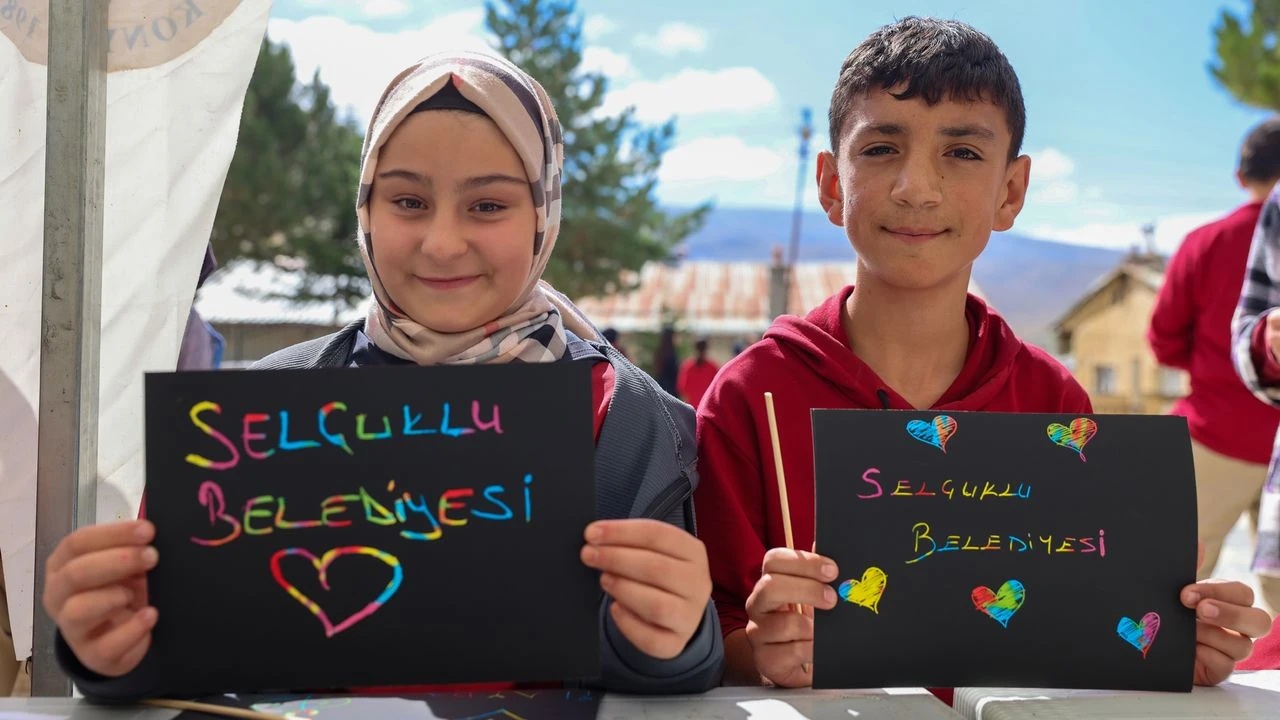 SELÇUKLU
BELEDİYESİ
SELÇUKLU
BELEDİYESİ